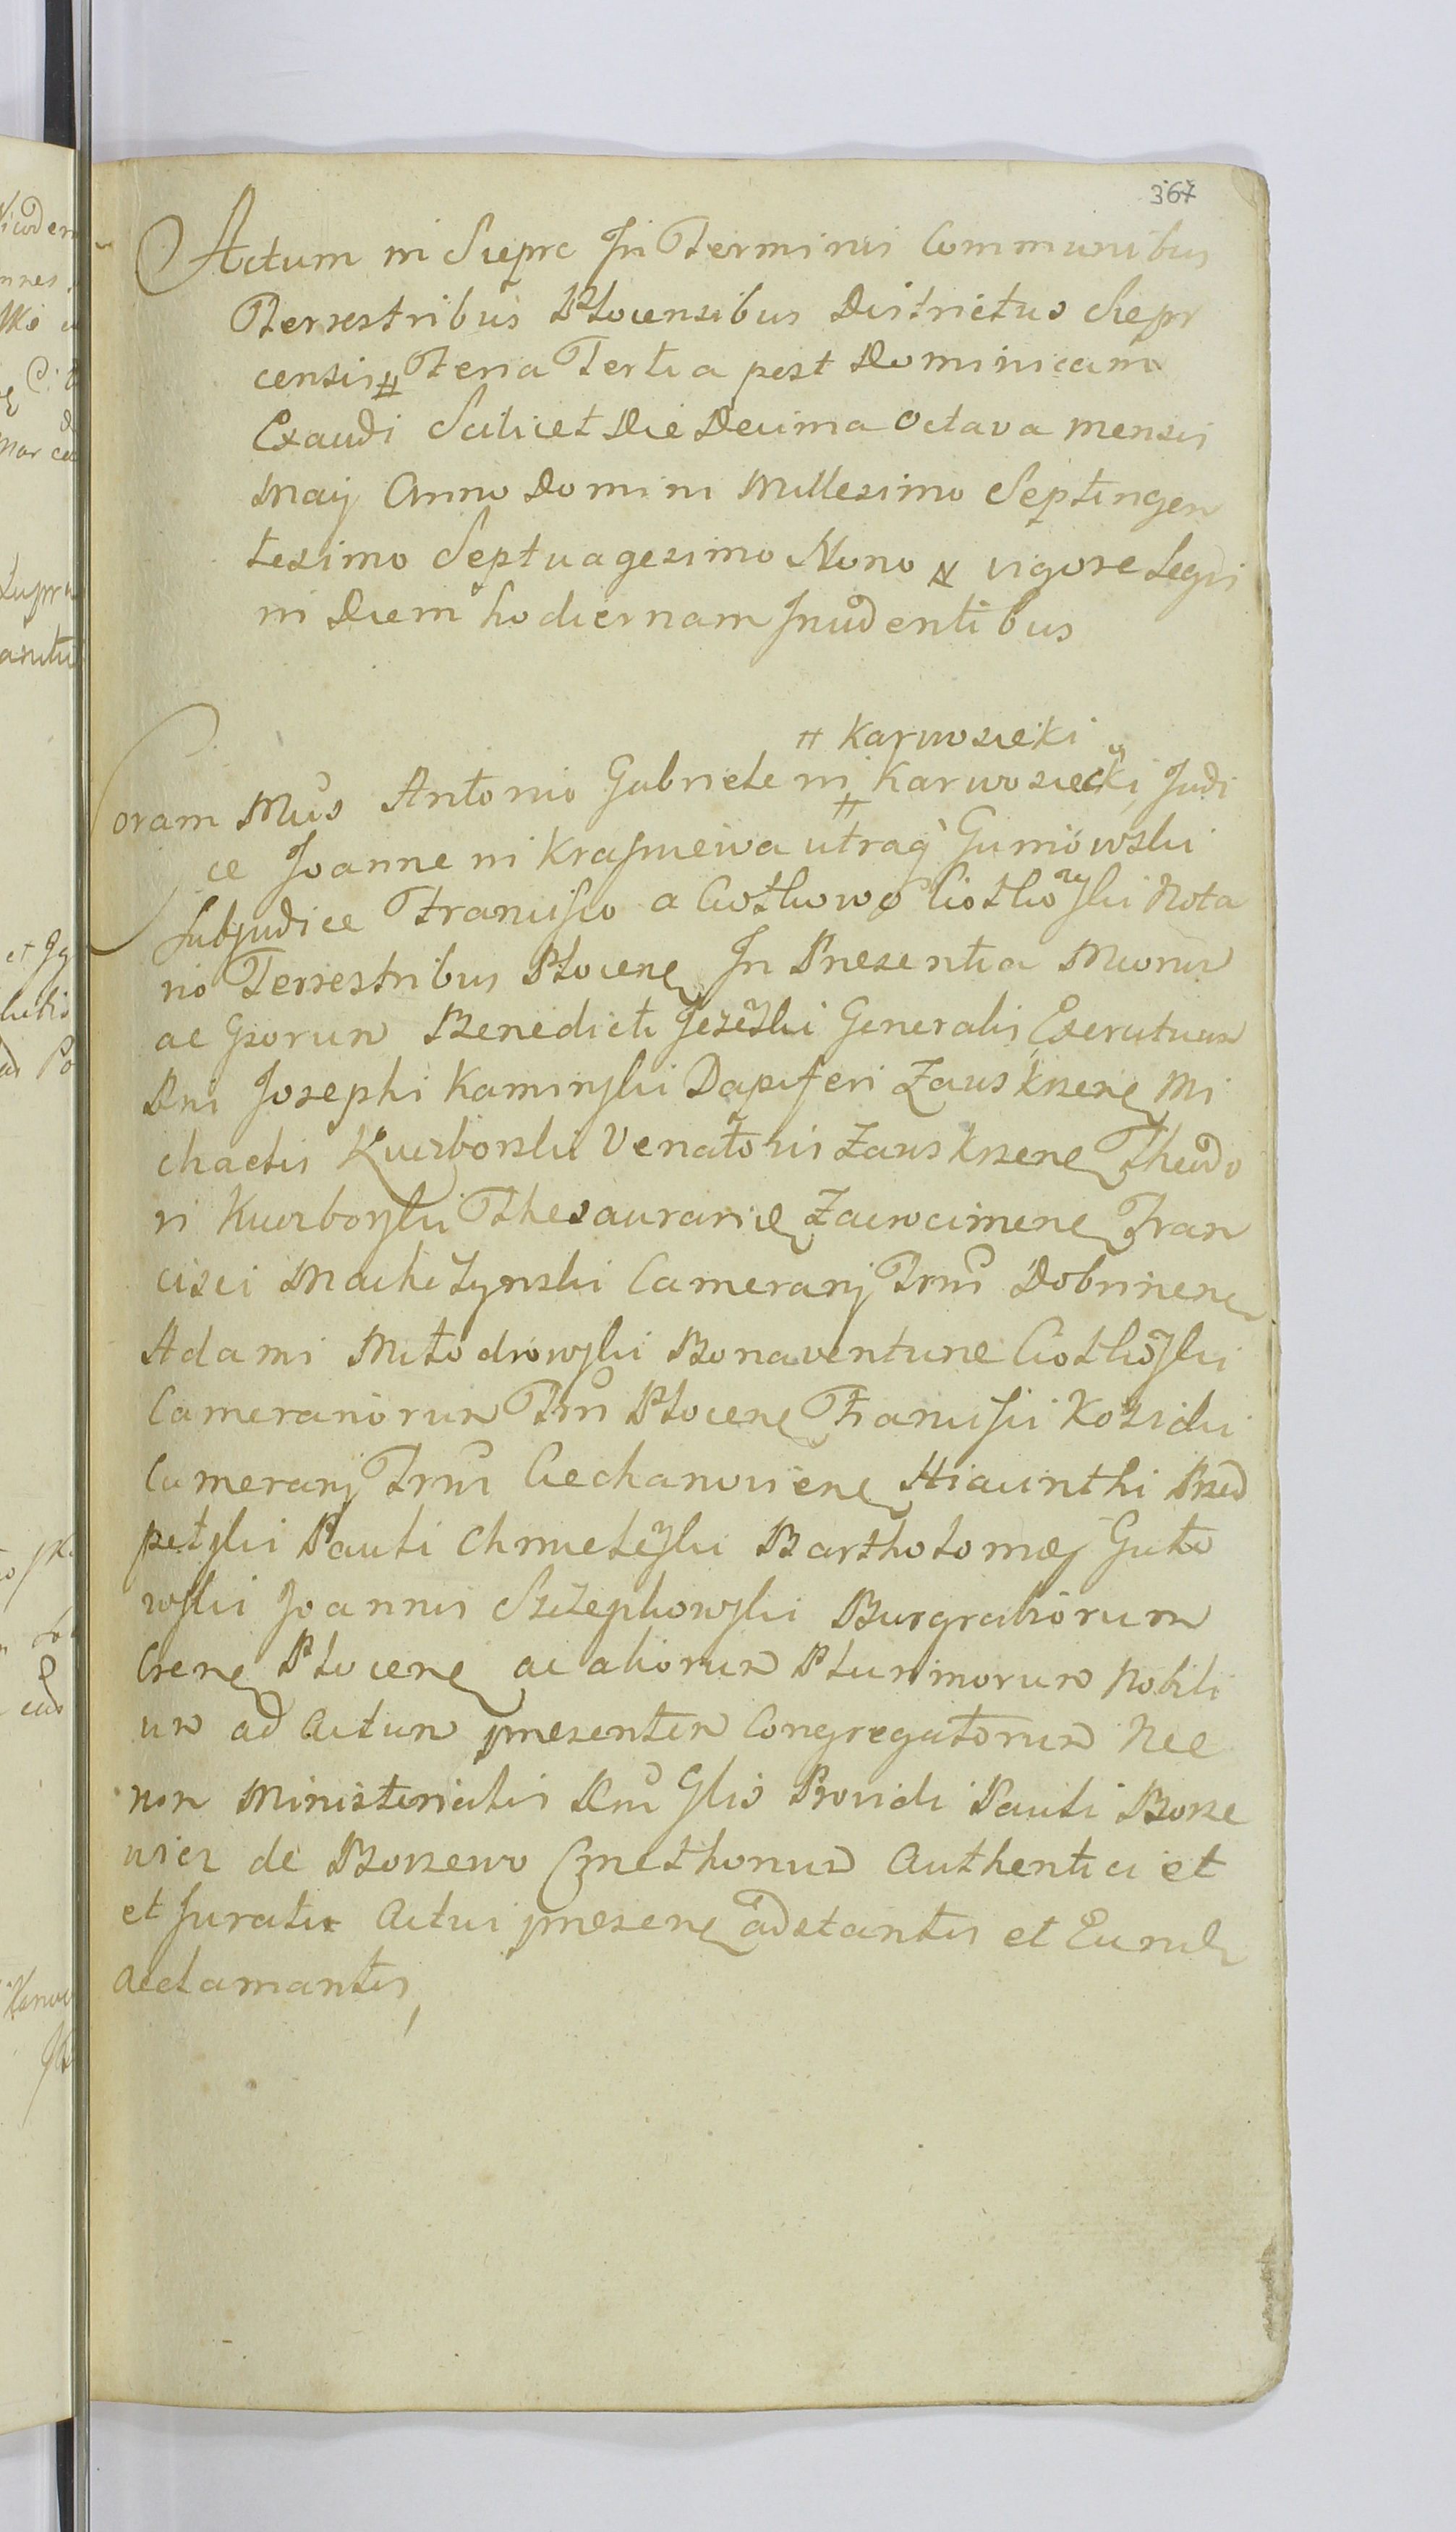 367
Actum in Sieprc In Terminis Communibus
Terrestribus Plocensibus Districtus Siepr
censis # Feria Tertia post Dominicam
Exaudi Scilicet Die Decima Octava mensis
Maij Anno Domini Millesimo Septingen
tesimo Septuagesimo Nono # vigore Legis
in Diem hodiernam Incidentibus
# Karwosieki
Coram Mcis Antonio Gabriele in # Karwosiecki Judi
ce Joanne in Krasniewa utraq Gumowski
Subjudice Francisco a Ciothowo Ciothowski Nota
rio Terrestribus Plocens In Presentia Mcorum
ac Gsorum Benedicti Jezewski Generalis Exercituum
Dni Josephi Kaminski Dapiferi Zauskrzens Mi
chaelis Kuczborski Venatoris Zauskrzens Theodo
ri Kuczborski Thesaurarii Zawocimens Fran
cisci Machczynski Camerarij Trris Dobrinens
Adami Mlodrowski Bonaventurae Ciothowski
Camerariorum Trris Plocens Francisci Kozicki
Camerarij Trris Ciechanoviens Hiacinthi Przed
pelski Pauli Chmielewski Bartholomaei Guto
wski Joannis Szczepkowski Burgrabiorum
Crens Plocens ac aliorum Plurimorum Nobili
um ad Actum presentem Congregatorum Nec
non Ministerialis Rni Glis Providi Pauli Borze
wicz de Borzewo Cmethonum Authentici et
et Jurati Actui presens adstantis et Eund
acclamantis,